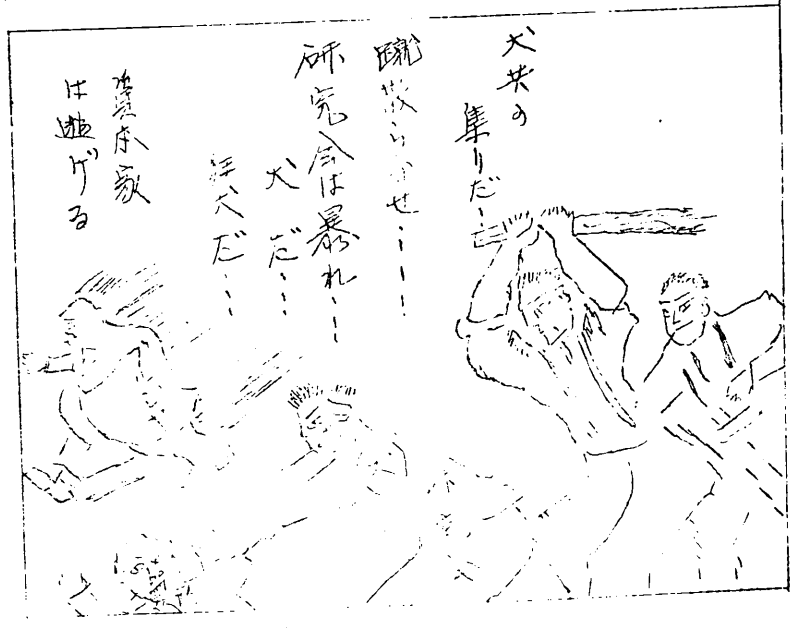 犬共の
集りだ…
蹴散らせ……
研究会は暴れ…
犬だ…
狂犬だ…
資本家
は逃げる